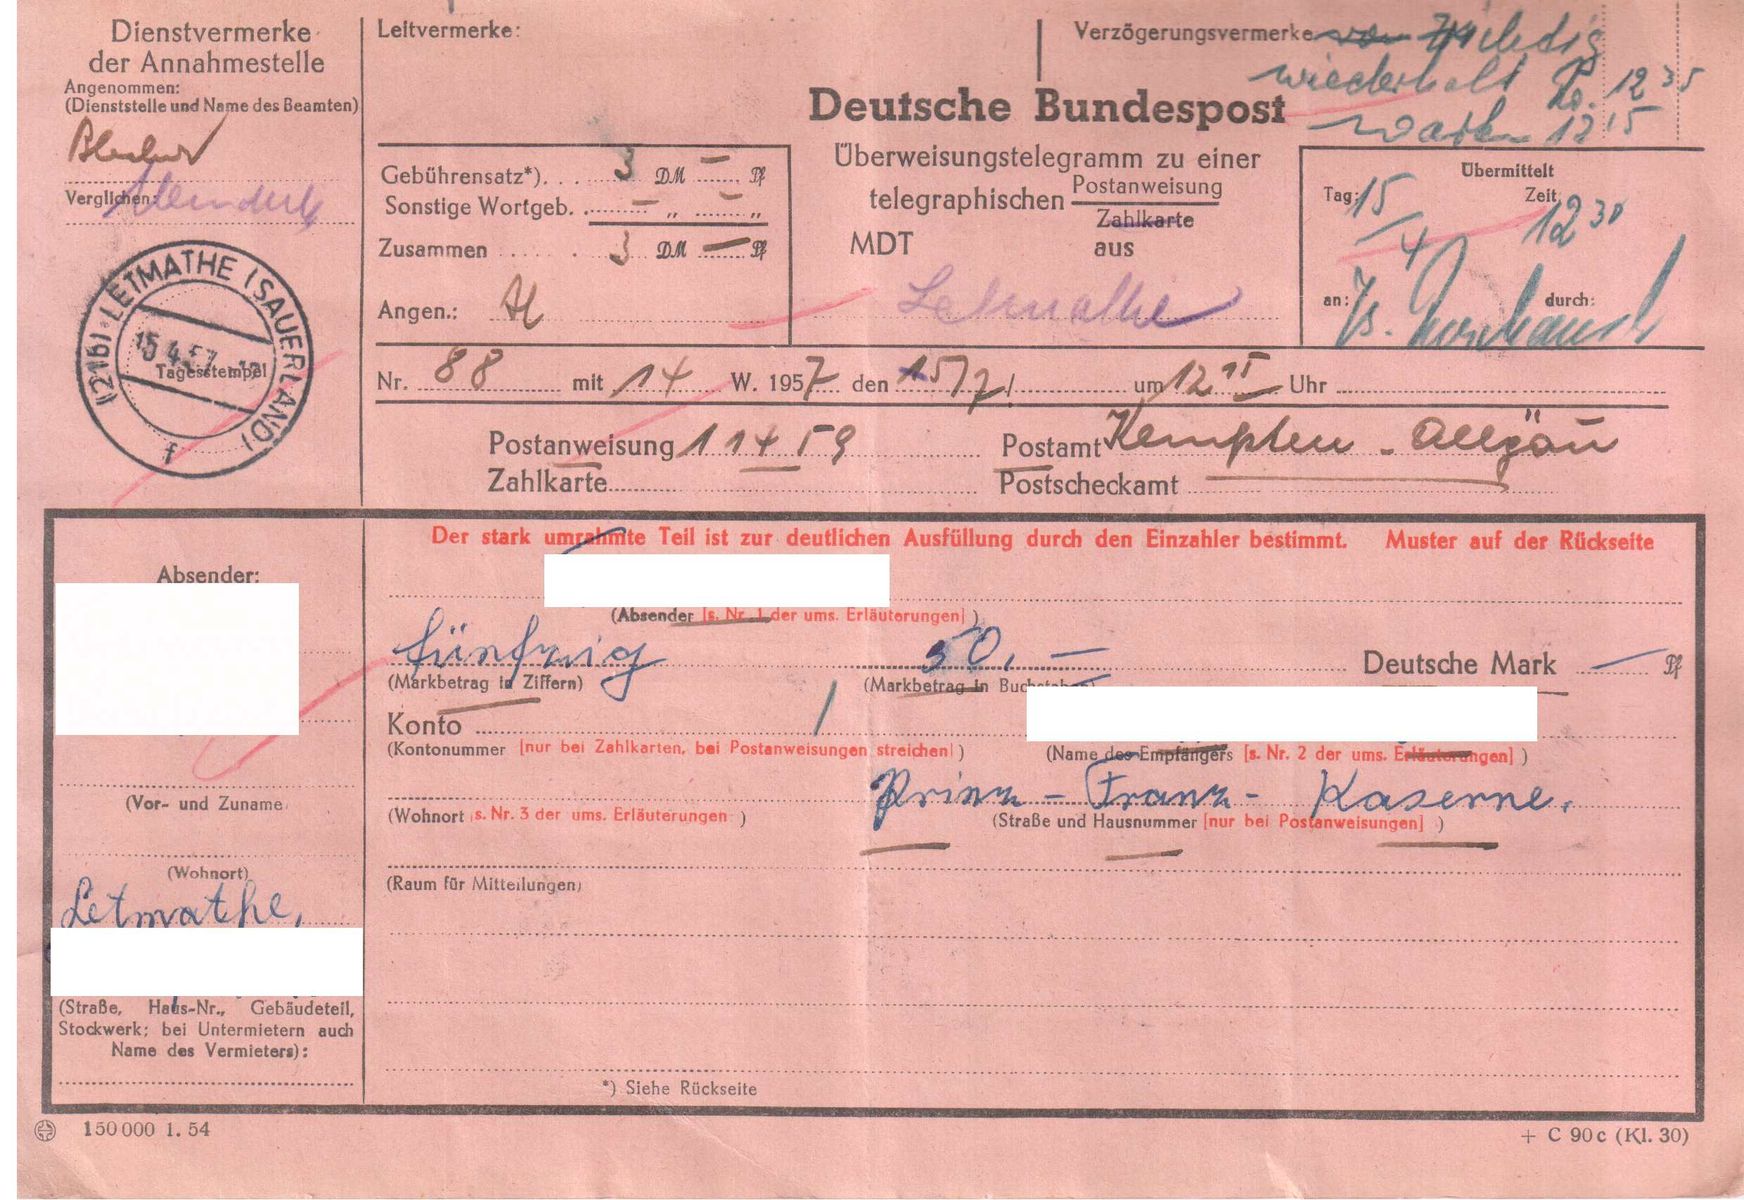 Dienstvermerke
der Annahmestelle
Angenommen:
(Dienststelle und Name des Beamten)
Verglichen:
(21b) LETMATHE (SAUERLAND)
15.4.57
Tagesstempel
f
Leitvermerke:
Verzögerungsvermerke
wiederholt 12 35
warten 12 15
Deutsche Bundespost
Überweisungstelegramm zu einer
telegraphischen Postanweisung
Zahlkarte
MDT aus
Letmathe
Gebührensatz*). . . 3 DM — Pf
Sonstige Wortgeb. . — „ — „
Zusammen . . . . . 3 DM — Pf
Angen.:
Übermittelt
Tag: 15/4 Zeit 12 30
an: durch:
Nr. 88 mit 14 W. 1957 den um 12 15 Uhr
Postanweisung 11459 Postamt Kempten - Allgäu
Zahlkarte Postscheckamt
Der stark umrahmte Teil ist zur deutlichen Ausfüllung durch den Einzahler bestimmt. Muster auf der Rückseite
Absender:
(Absender [s. Nr. 1 der ums. Erläuterungen] )
fünfzig 50,— Deutsche Mark — Pf
(Markbetrag in Ziffern) (Markbetrag in Buchstaben)
Konto
(Kontonummer [nur bei Zahlkarten, bei Postanweisungen streichen] ) (Name des Empfängers [s. Nr. 2 der ums. Erläuterungen] )
Prinz - Franz - Kaserne.
(Vor- und Zuname
(Wohnort [s. Nr. 3 der ums. Erläuterungen ) (Straße und Hausnummer [nur bei Postanweisungen] )
(Wohnort)
Letmathe,
(Raum für Mitteilungen)
(Straße, Haus-Nr., Gebäudeteil,
Stockwerk; bei Untermietern auch
Name des Vermieters):
*) Siehe Rückseite
150 000 1. 54
+ C 90 c (Kl. 30)